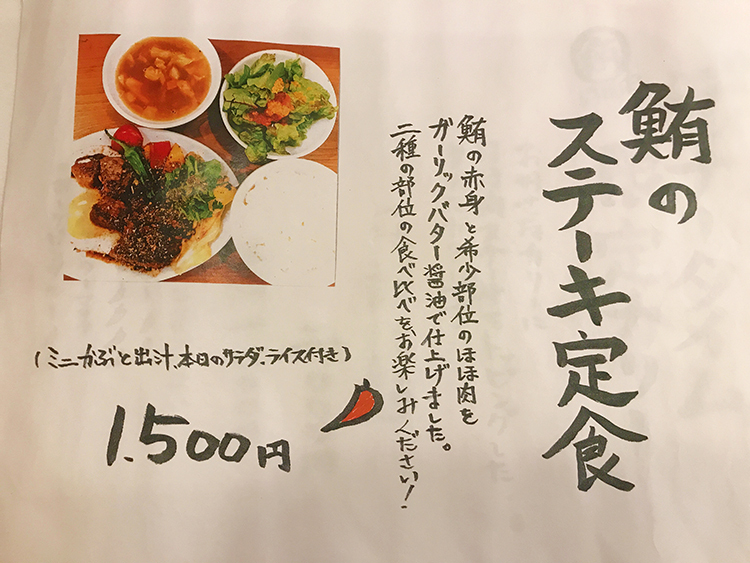 鮪の
ステーキ定食
鮪の赤身と希少部位のほほ肉を
ガーリックバター醤油で仕上げました。
二種の部位の食べ比べをお楽しみください！
(ミニかぶと出汁、本日のサラダ、ライス付き)
1.500円